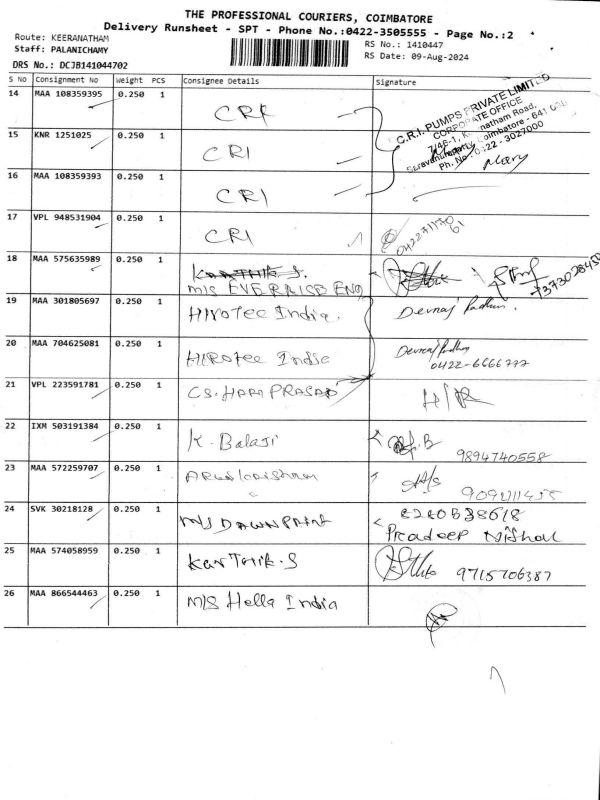 THE PROFESSIONAL COURIERS, COIMBATORE
Delivery Runsheet - SPT - Phone No.:0422-3505555 - Page No.:2
Route: KEERANATHAM
RS No.: 1410447
Staff: PALANICHAMY
RS Date: 09-Aug-2024
DRS No.: DCJB141044702
S NO Consignment No Weight PCS Consignee Details Signature
14 MAA 108359395 0.250 1 CRI
C.R.I. PUMPS PRIVATE LIMITED
CORPORATE OFFICE
7/46-1, Keeranatham Road,
Coimbatore - 641
Ph. No : 0422 - 3027000
15 KNR 1251025 0.250 1 CRI
16 MAA 108359393 0.250 1 CRI
17 VPL 948531904 0.250 1 CRI
18 MAA 575635989 0.250 1 Karthik. S.
M/S EVERRISE ENG
19 MAA 301805697 0.250 1 HIROTEC India. Devraj Padhan.
20 MAA 704625081 0.250 1 HIROTEC India Devraj Padhan
0422-6666777
21 VPL 223591781 0.250 1 CS. HARI PRASAD H/R
22 IXM 503191384 0.250 1 K. Balaji
9894740558
23 MAA 572259707 0.250 1
24 SVK 30218128 0.250 1 M/S DAWN PRINT
Pradeep
25 MAA 574058959 0.250 1 KarThik. S 9715706387
26 MAA 866544463 0.250 1 M/S Hella India